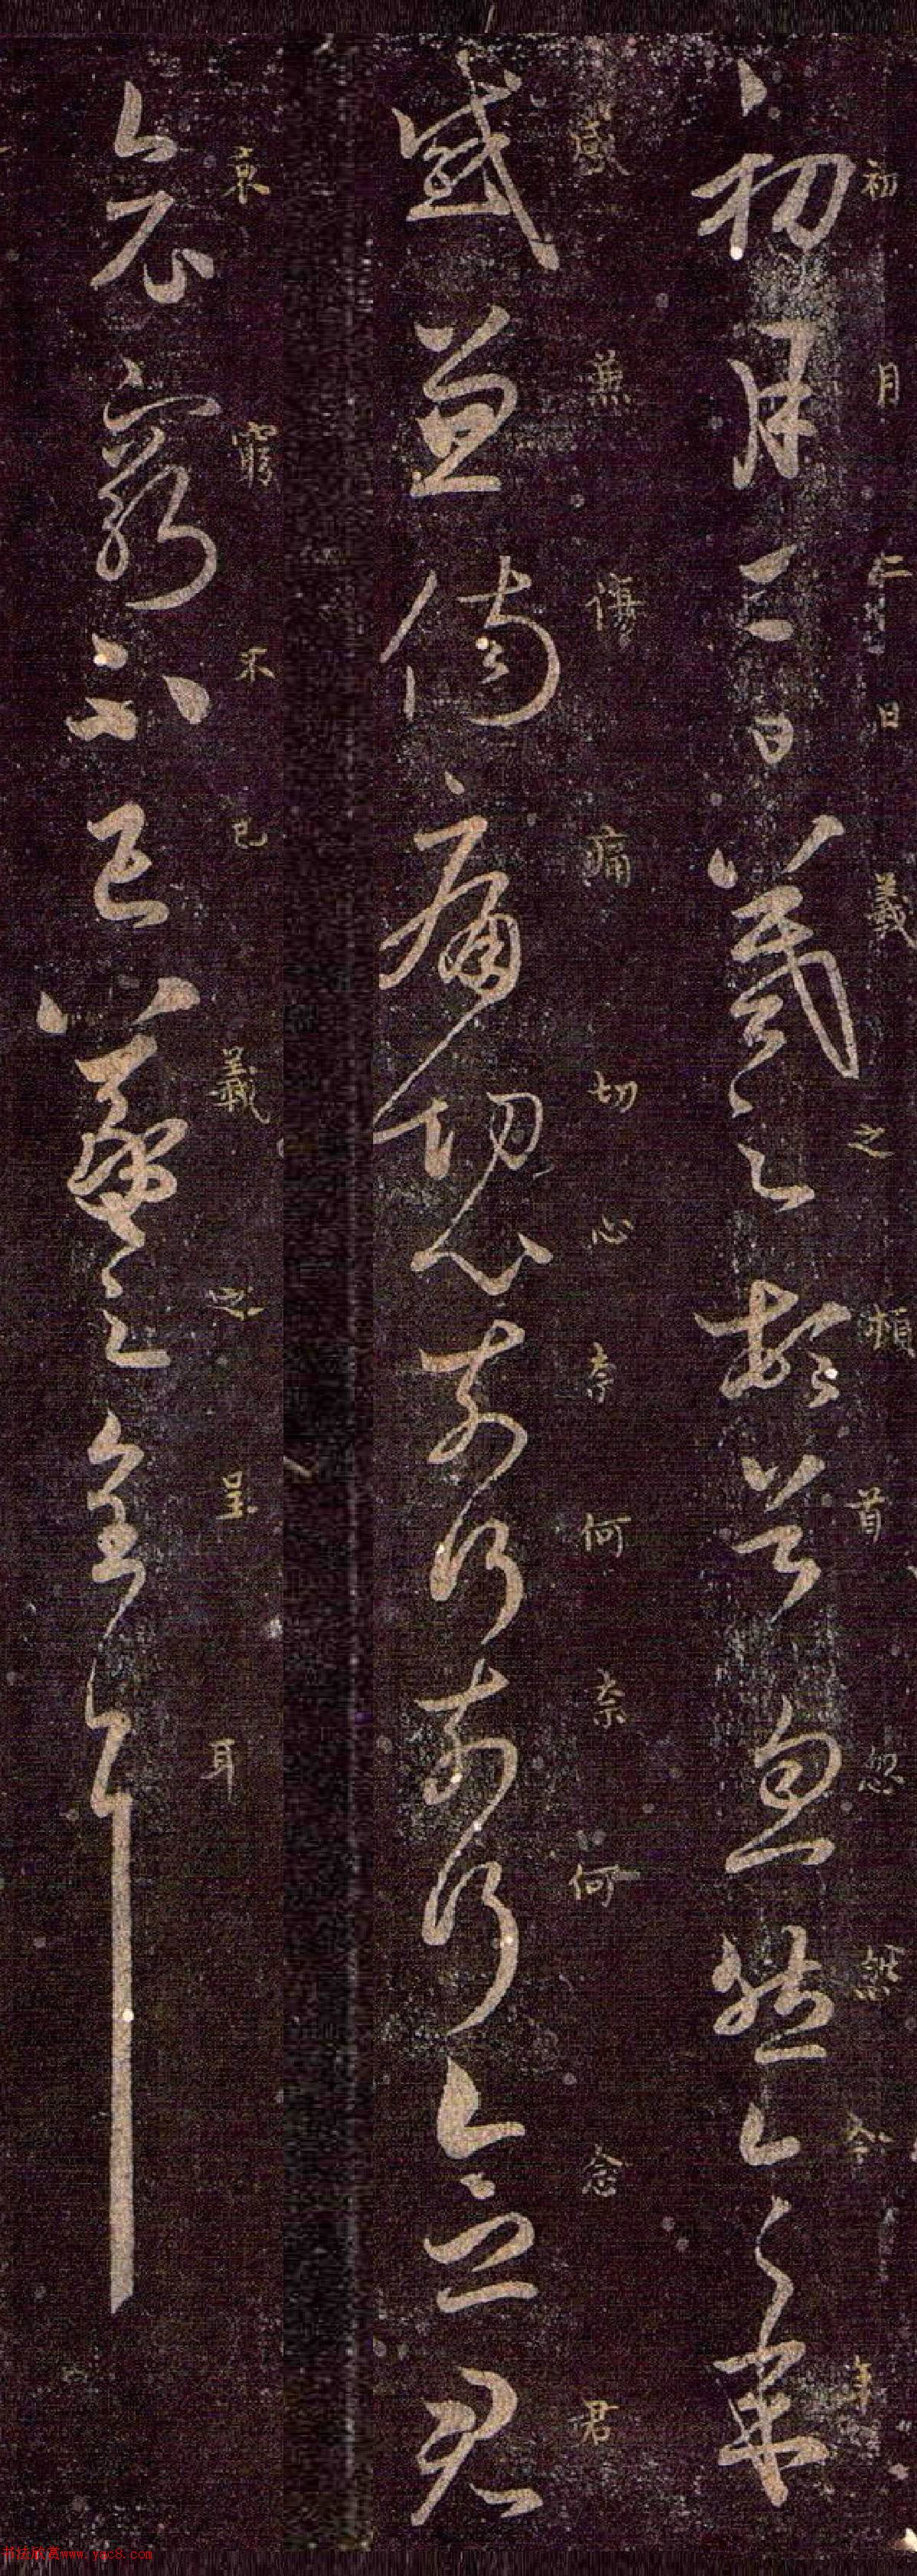 初月二日羲之頓首忽然今年
感兼傷痛切心奈何奈何念君
哀窮不已羲之呈耳
初月二日羲之頓首忽然今年
感兼傷痛切心奈何奈何念君
哀窮不已羲之呈耳
书法欣赏www.yac8.com